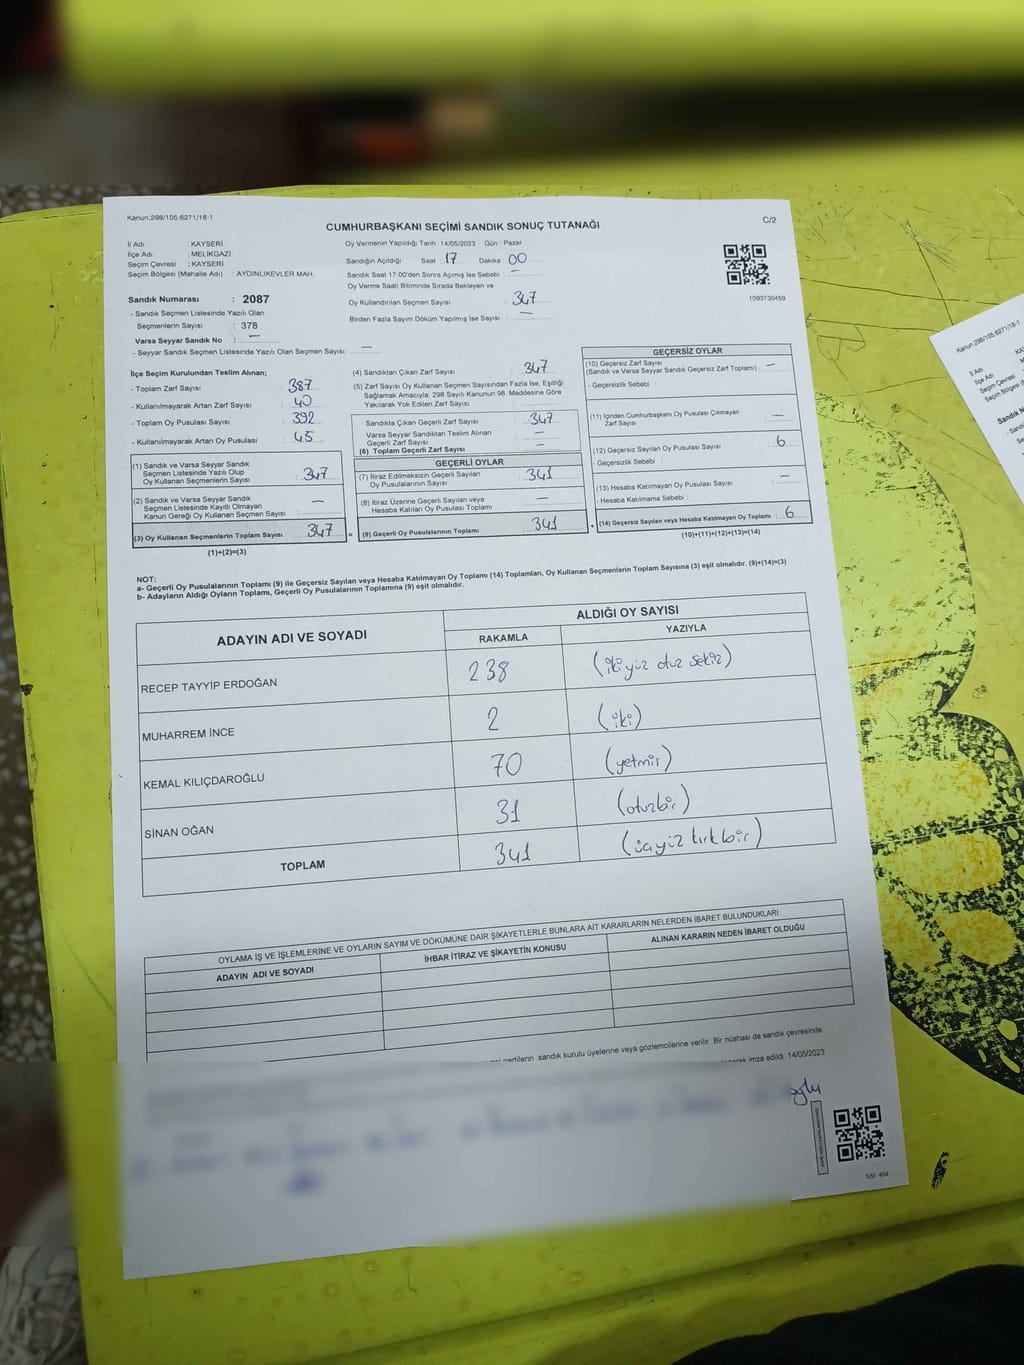 Kanun;298/105;6271/18-1
C/2
CUMHURBAŞKANI SEÇİMİ SANDIK SONUÇ TUTANAĞI
İl Adı : KAYSERİ
İlçe Adı : MELİKGAZİ
Seçim Çevresi : KAYSERİ
Seçim Bölgesi (Mahalle Adı) : AYDINLIKEVLER MAH.
Oy Vermenin Yapıldığı Tarih : 14/05/2023 Gün : Pazar
Sandığın Açıldığı Saat 17 Dakika 00
Sandık Saat 17:00'den Sonra Açımış İse Sebebi : —
Oy Verme Saati Bitiminde Sırada Bekleyen ve
Oy Kullandırılan Seçmen Sayısı : 347
Birden Fazla Sayım Döküm Yapılmış İse Sayısı : —
1093730459
Sandık Numarası : 2087
- Sandık Seçmen Listesinde Yazılı Olan
Seçmenlerin Sayısı : 378
Varsa Seyyar Sandık No : —
- Seyyar Sandık Seçmen Listesinde Yazılı Olan Seçmen Sayısı: —
İlçe Seçim Kurulundan Teslim Alınan;
- Toplam Zarf Sayısı : 387
- Kullanılmayarak Artan Zarf Sayısı : 40
- Toplam Oy Pusulası Sayısı : 392
- Kullanılmayarak Artan Oy Pusulası : 45
(1) Sandık ve Varsa Seyyar Sandık
Seçmen Listesinde Yazılı Olup
Oy Kullanan Seçmenlerin Sayısı : 347
(2) Sandık ve Varsa Seyyar Sandık
Seçmen Listesinde Kayıtlı Olmayan
Kanun Gereği Oy Kullanan Seçmen Sayısı : —
(3) Oy Kullanan Seçmenlerin Toplam Sayısı : 347
(1)+(2)=(3)
(4) Sandıktan Çıkan Zarf Sayısı : 347
(5) Zarf Sayısı Oy Kullanan Seçmen Sayısından Fazla İse, Eşitliği
Sağlamak Amacıyla; 298 Sayılı Kanunun 98. Maddesine Göre
Yakılarak Yok Edilen Zarf Sayısı :
Sandıkta Çıkan Geçerli Zarf Sayısı : 347
Varsa Seyyar Sandıktan Teslim Alınan
Geçerli Zarf Sayısı : —
(6) Toplam Geçerli Zarf Sayısı : —
GEÇERLİ OYLAR
(7) İtiraz Edilmeksizin Geçerli Sayılan
Oy Pusulasının Sayısı : 341
(8) İtiraz Üzerine Geçerli Sayılan veya
Hesaba Katılan Oy Pusulası Toplamı : —
= (9) Geçerli Oy Pusulasının Toplamı : 341
GEÇERSİZ OYLAR
(10) Geçersiz Zarf Sayısı
(Sandık ve Varsa Seyyar Sandık Geçersiz Zarf Toplamı) : —
- Geçersizlik Sebebi :
(11) İçinden Cumhurbaşkanı Oy Pusulası Çıkmayan
Zarf Sayısı : —
(12) Geçersiz Sayılan Oy Pusulası Sayısı : 6
- Geçersizlik Sebebi :
(13) Hesaba Katılmayan Oy Pusulası Sayısı : —
- Hesaba Katılmama Sebebi :
+ (14) Geçersiz Sayılan veya Hesaba Katılmayan Oy Toplamı : 6
(10)+(11)+(12)+(13)=(14)
NOT:
a- Geçerli Oy Pusulalarının Toplamı (9) ile Geçersiz Sayılan veya Hesaba Katılmayan Oy Toplamı (14) Toplamları, Oy Kullanan Seçmenlerin Toplam Sayısına (3) eşit olmalıdır. (9)+(14)=(3)
b- Adayların Aldığı Oyların Toplamı, Geçerli Oy Pusulalarının Toplamına (9) eşit olmalıdır.
ADAYIN ADI VE SOYADI
ALDIĞI OY SAYISI
RAKAMLA YAZIYLA
RECEP TAYYİP ERDOĞAN 238 (ikiyüz otuz sekiz)
MUHARREM İNCE 2 (iki)
KEMAL KILIÇDAROĞLU 70 (yetmiş)
SİNAN OĞAN 31 (otuzbir)
TOPLAM 341 (üçyüz kırkbir)
OYLAMA İŞ VE İŞLEMLERİNE VE OYLARIN SAYIM VE DÖKÜMÜNE DAİR ŞİKAYETLERLE BUNLARA AİT KARARLARIN NELERDEN İBARET BULUNDUKLARI
ADAYIN ADI VE SOYADI İHBAR İTİRAZ VE ŞİKAYETİN KONUSU ALINAN KARARIN NEDEN İBARET OLDUĞU
partilerin sandık kurulu üyelerine veya gözlemcilerine verilir. Bir nüshası da sandık çevresinde
imza edildi. 14/05/2023
SSI 404
Kanun;298/105;6271/18-1
İl Adı
İlçe Adı
Seçim Çevresi